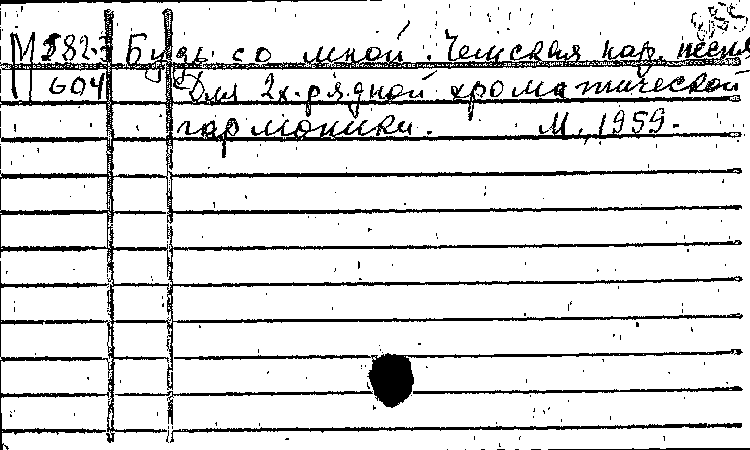 М582.3 Будь со мной. Чешская нар. песня
604 Для 2х-рядной хроматической
гармоники. М., 1959.